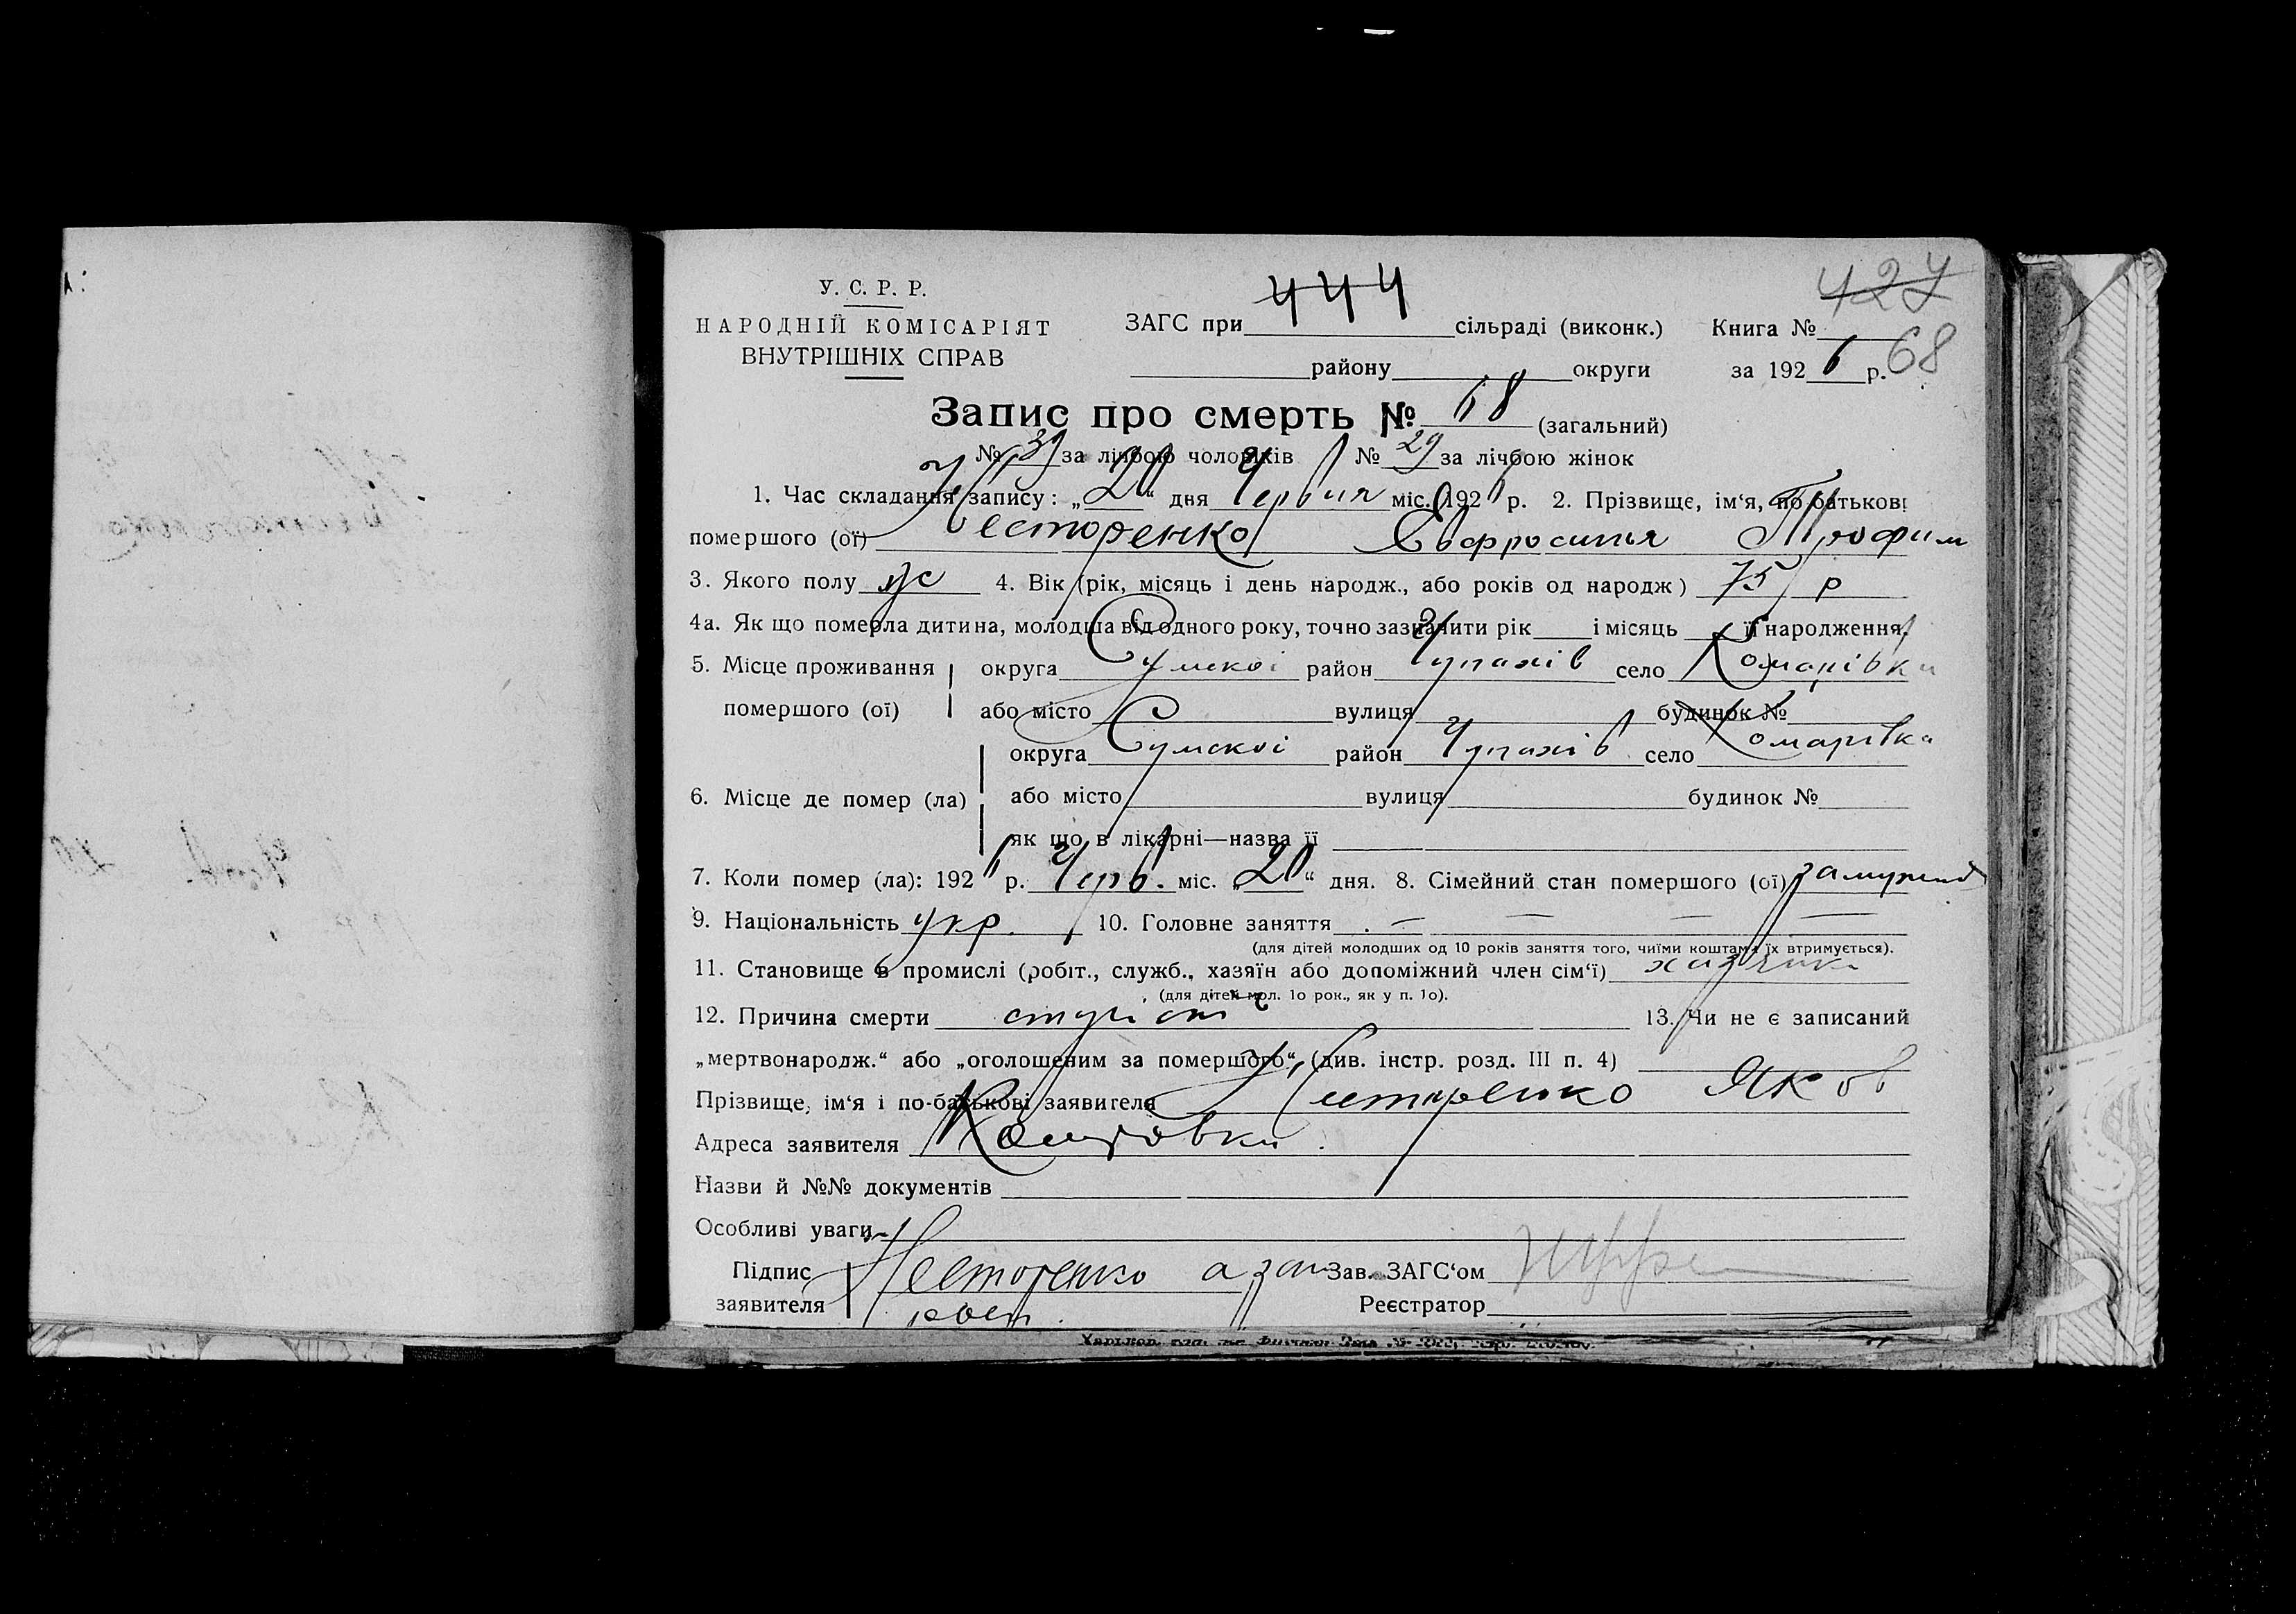 444
427
У. С. Р. Р.
НАРОДНІЙ КОМІСАРІЯТ
ВНУТРІШНІХ СПРАВ
ЗАГС при сільраді (виконк.) Книга №
68
району округи за 1926 р.
Запис про смерть № 68 (загальний)
№ 39 за лічбою чоловіків № 29 за лічбою жінок
1. Час складання запису: „20“ дня Червня міс. 1926 р. 2. Прізвище, ім‘я, по батькові
помершого (ої) Несторенко Евфросинья Трофим
3. Якого полу ж 4. Вік (рік, місяць і день народж., або років од народж) 75 р
4а. Як що померла дитина, молодша від одного року, точно зазначити рік і місяць її народження.
5. Місце проживання округа Сумскоі район Чупахів село Комарівка
помершого (ої) або місто вулиця будинок №
округа Сумскоі район Чупахів село Комарівка
6. Місце де помер (ла) або місто вулиця будинок №
як що в лікарні—назва її
7. Коли помер (ла): 1926 р. Черв. міс. „20“ дня. 8. Сімейний стан помершого (ої)
9. Національність укр. 10. Головне заняття — — — —
(для дітей молодших од 10 років заняття того, чиїми коштами їх втримується).
11. Становище в промислі (робіт., служб., хазяїн або допоміжний член сім‘ї) хазяйка
(для дітей мол. 1о рок., як у п. 1о).
12. Причина смерти 13. Чи не є записаний
„мертвонародж.“ або „оголошеним за помершого“, (див. інстр. розд. III п. 4)
Прізвище, ім‘я і по-батькові заявителя Несторенко Яков
Адреса заявителя Комаровка
Назви й №№ документів
Особливі уваги
Підпис Несторенко Зав. ЗАГС‘ом
заявителя Реєстратор